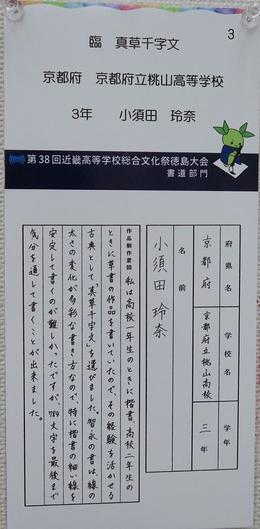 3
臨　真草千字文
京都府　京都府立桃山高等学校
3年　小須田　玲奈
第38回近畿高等学校総合文化祭徳島大会
書道部門
府県名
学校名
学年
京都府
京都府立桃山高校
三年
名前
小須田玲奈
作品制作意図
私は高校一年生のときに楷書、高校二年生の
ときに草書の作品を書いていたので、その経験を活かせる
古典として「真草千字文」を選びました。智永の書は、線の
太さの変化が多彩な書き方なので、特に楷書の細い線を
安定して書くのが難しかったですが、984文字を最後まで
気分を通して書くことが出来ました。